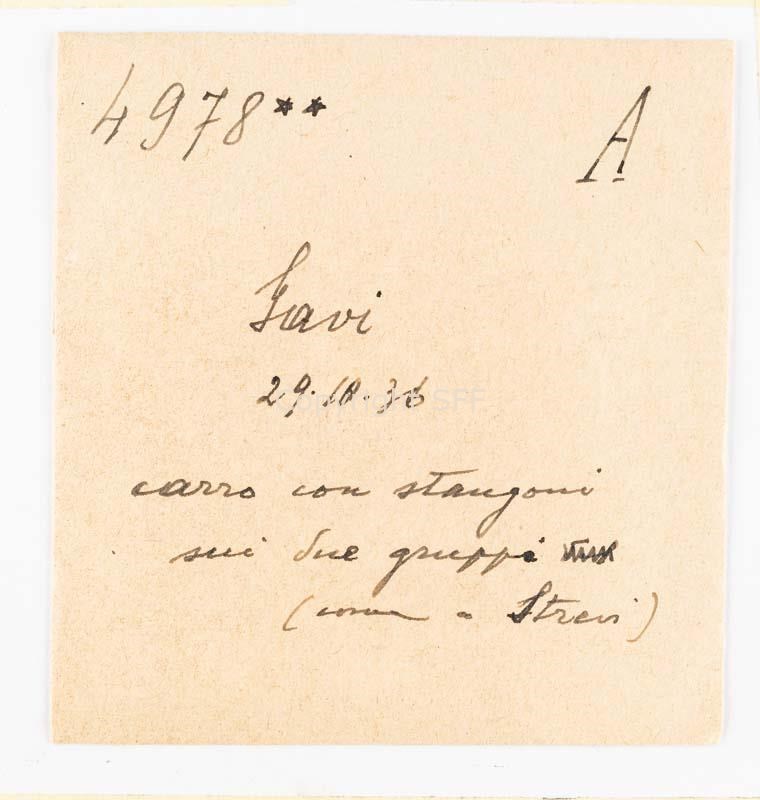 4978** A
Gavi
29.10.36
carro con stangoni
sui due gruppi
(come a Strevi)